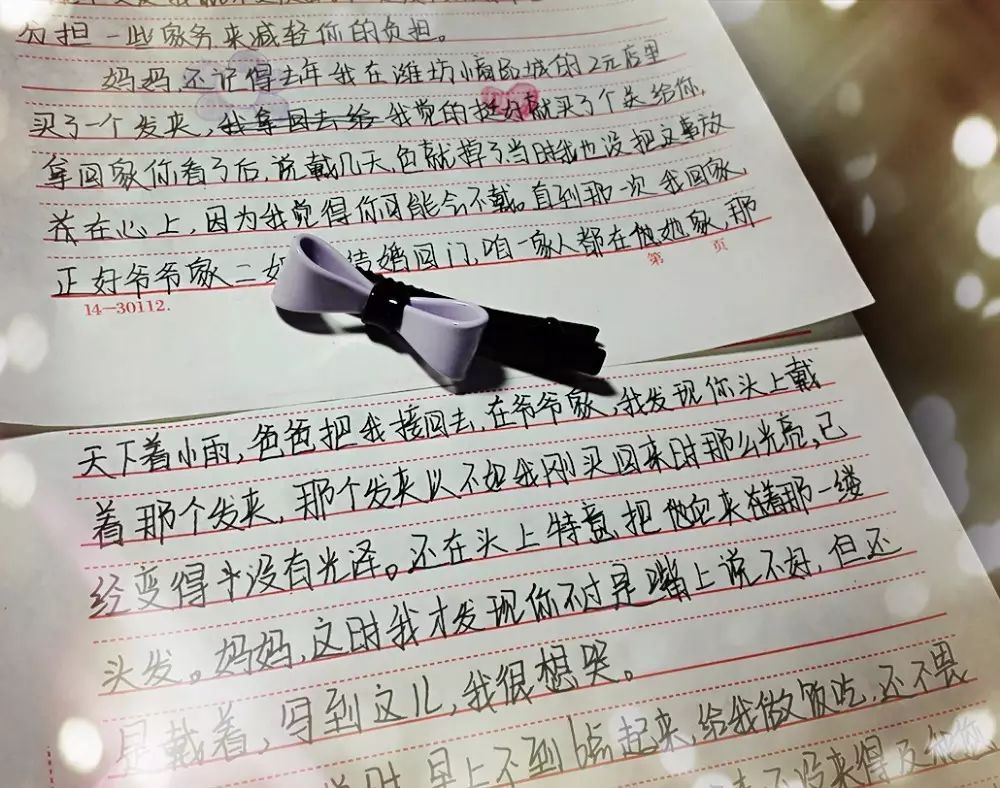 分担一些家务来减轻你的负担。
妈妈,还记得去年我在潍坊小商品城的2元店里
买了一个发夹,我拿回去给我觉的挺好就买了个关给你,
拿回家你看了后,说戴几天色就掉了当时我也没把这事放
在心上,因为我觉得你可能会不戴。直到那一次我回家,
正好爷爷家二 结婚回门,咱一家人都在他她家,那
第 页
14—30112.
天下着小雨,爸爸把我接回去,在爷爷家,我发现你头上戴
着那个发夹,那个发夹以不如我刚买回来时那么光亮,已
经变得没有光泽。还在头上特意把他夹着那一缕
头发。妈妈,这时我才发现你不过是嘴上说不好,但还
是戴着,写到这儿,我很想哭。
早上不到6点起来,给我做饭吃,还不畏
没来得及